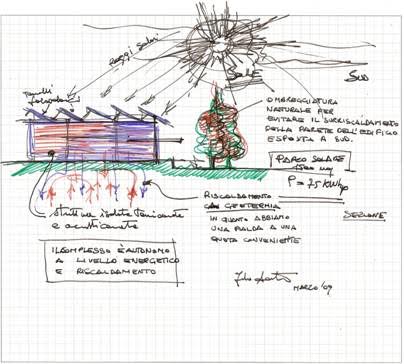 Raggi Solari
SOLE
SUD
Pannelli
fotovoltaici
OMBREGGIATURA
NATURALE PER
EVITARE IL SURRISCALDAMENTO
DELLA PARETE DELL'EDIFICIO
ESPOSTA A SUD.
PARCO SOLARE
mq
P = 75 KW/
RISCALDAMENTO
GEOTERMIA
IN QUANTO ABBIAMO
UNA FALDA A UNA
QUOTA CONVENIENTE
SEZIONE
struttura isolata termicamente
e acusticamente
IL COMPLESSO È AUTONOMO
A LIVELLO ENERGETICO
E RISCALDAMENTO
MARZO '09